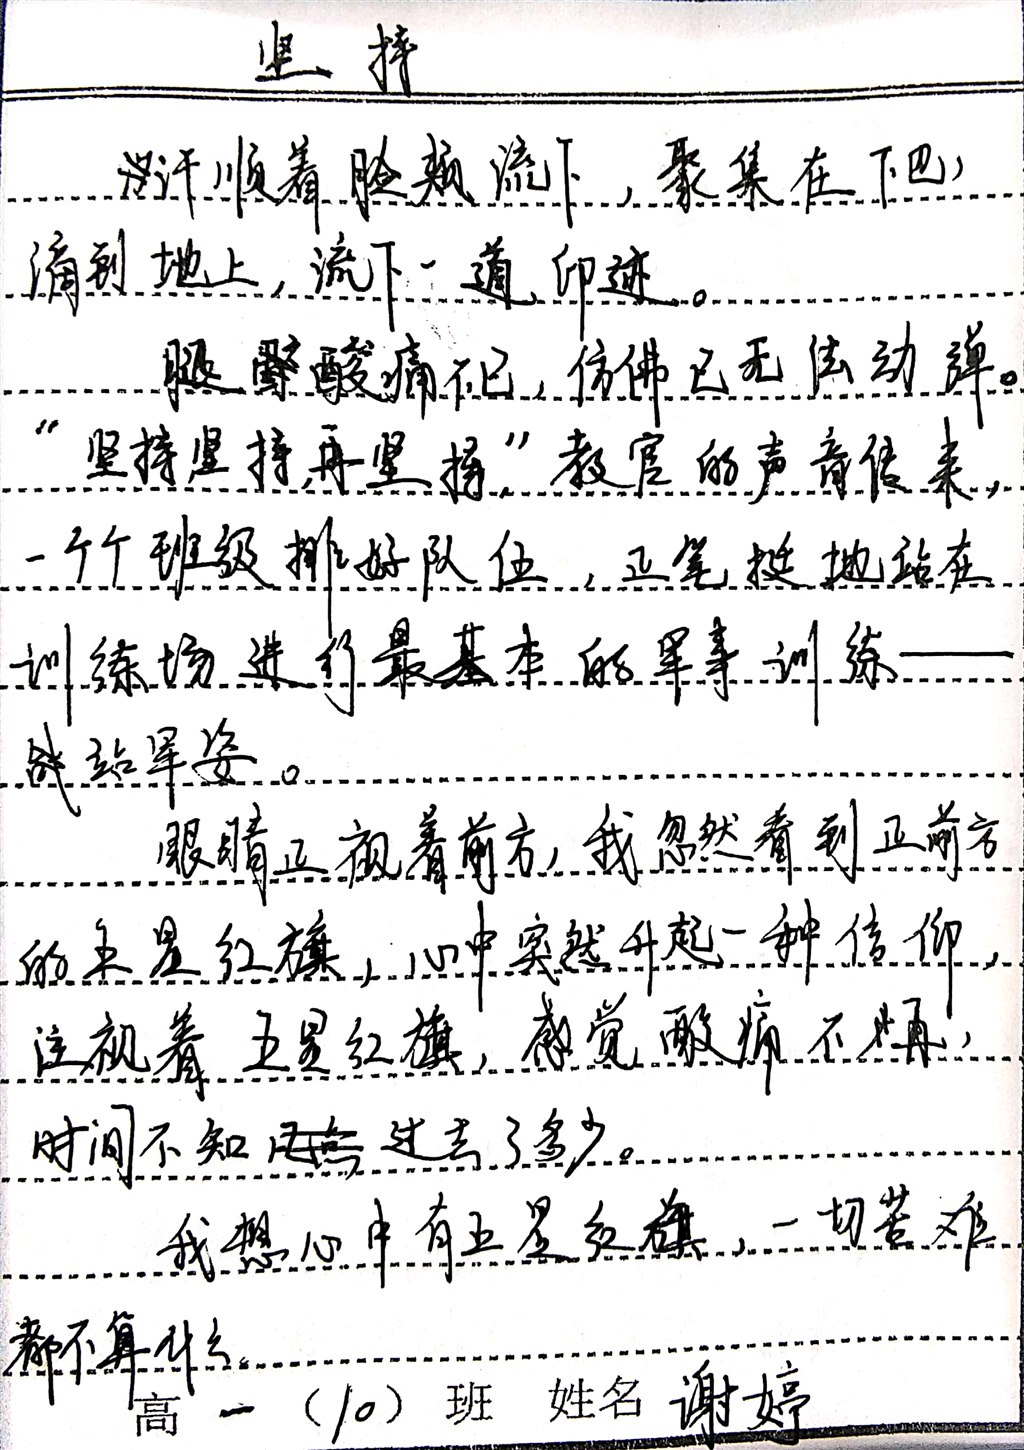 坚持
汗顺着脸颊流下，聚集在下巴，
滴到地上，流下一道印迹。
腿酸痛不已，仿佛已无法动弹。
“坚持坚持再坚持，”教官的声音传来，
一个个班级排好队伍，正笔挺地站在
训练场进行最基本的军事训练——
站军姿。
眼睛正视着前方，我忽然看到正前方
的五星红旗，心中突然升起一种信仰，
注视着五星红旗，感觉酸痛不再，
时间不知过去了多少。
我想心中有五星红旗，一切苦难
都不算什么。
高一（10）班 姓名 谢婷